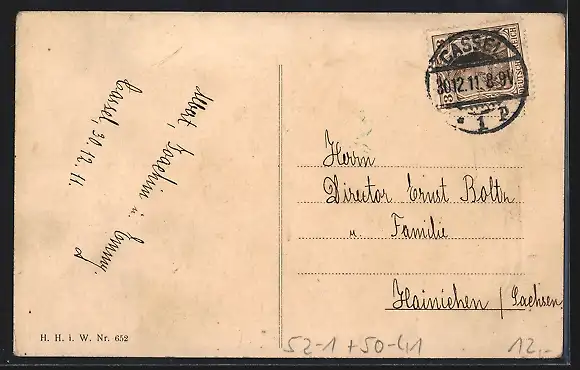 CASSEL
30.12.11. 8-9V
* 1 P
Joachim u. Emmy.
Cassel, 30.12.11.
Herrn
Director Ernst Bolte
u. Familie
Hainichen / Sachsen
H. H. i. W. Nr. 652
52-1+50-41
12,-